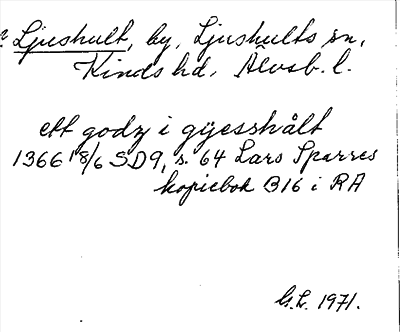 Ljushult, by, Ljushults sn,
Kinds hd, Älvsb. l.
ett godz i gyesshält
1366 18/6 SD9, s. 64 Lars Sparres
kopiebok B16 i RA
G.L. 1971.